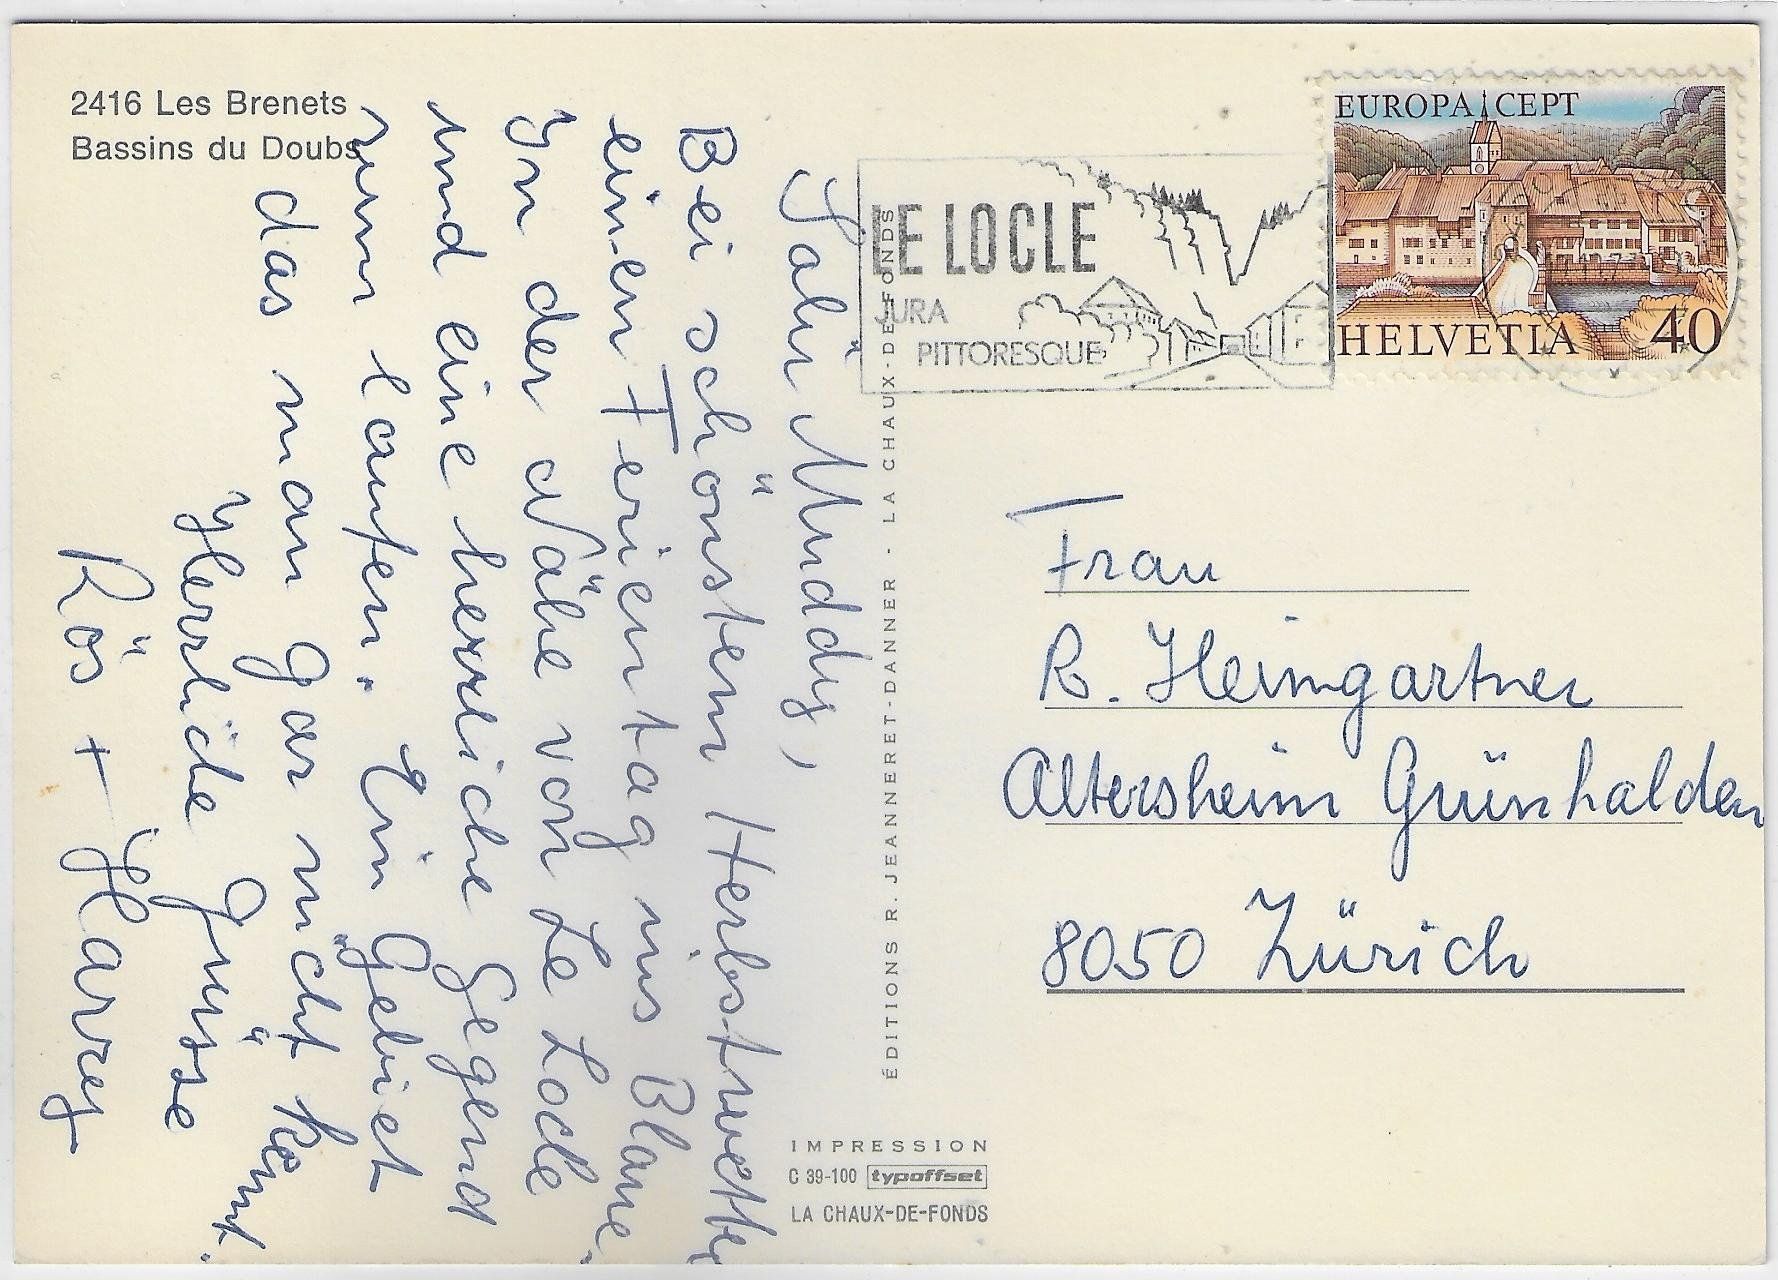 2416 Les Brenets
Bassins du Doubs
Salü Muddy,
Bei schönstem Herbstwetter
einen Ferientag ins Blaue.
In der Nähe von Le Locle
und eine herrliche Gegend
zum laufen. Ein Gebiet
das man gar nicht kennt.
Herrliche Grüsse
Rös + Harry
ÉDITIONS R. JEANNERET-DANNER - LA CHAUX-DE-FONDS
IMPRESSION
C 39-100 typoffset
LA CHAUX-DE-FONDS
LE LOCLE
JURA
PITTORESQUE
EUROPA CEPT
HELVETIA 40
Frau
R. Heimgartner
Altersheim Grünhalden
8050 Zürich